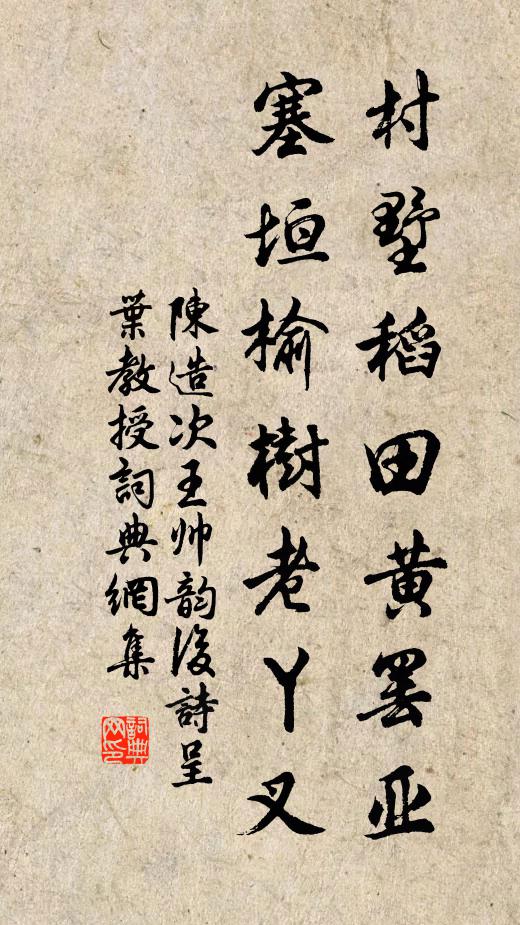 村墅稻田黄罢亚
塞垣榆樹老丫叉
陳造次王帅韵後詩呈
葉教授詞典網集
詞典网印